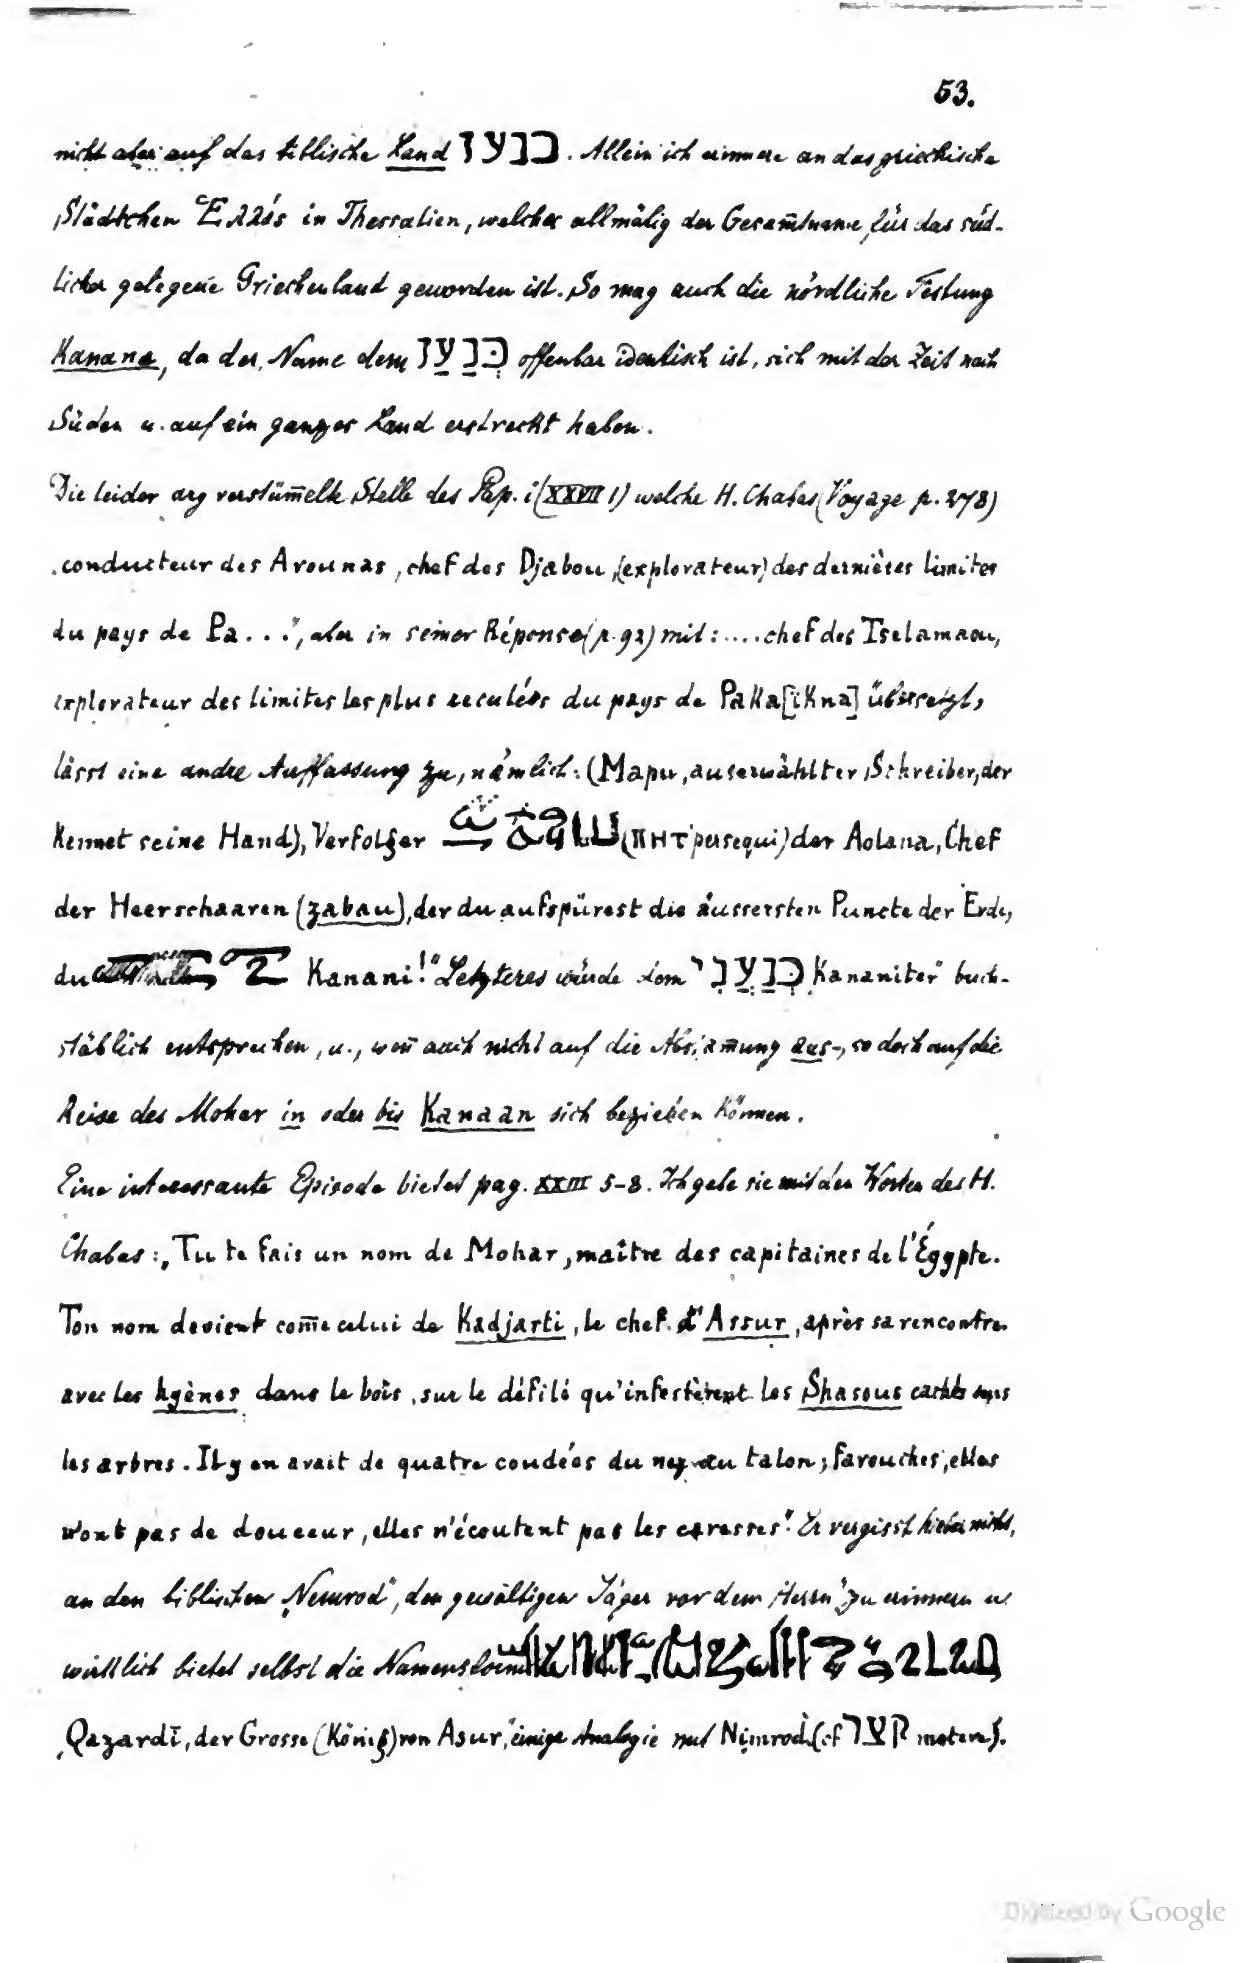 53.
nicht aber auf das biblische Land כנען. Allein ich erinnere an das griechische
Städtchen Ἑλλάς in Thessalien, welches allmälig der Gesam̅tname für das süd-
licher gelegene Griechenland geworden ist. So mag auch die nördliche Festung
Kanana, da der Name dem כְּנַעַן offenbar identisch ist, sich mit der Zeit nach
Süden u. auf ein ganzes Land erstreckt haben.
Die leider arg verstüm̅elte Stelle des Pap. i (XXVII 1) welche H. Chabas (Voyage p. 278)
„conducteur des Arounas, chef des Djabou, (explorateur) des dernières limites
du pays de Pa . . .", aber in seiner Réponse (p. 92) mit: .... chef des Tselamaou,
explorateur des limites les plus reculées du pays de Paka[ikna] übersetzt,
lässt eine andre Auffassung zu, nämlich: (Mapu, auserwählter Schreiber, der
kennet seine Hand), Verfolger (ⲡⲏⲧ persequi) der Aolana, Chef
der Heerschaaren (zabau), der du aufspürest die äussersten Puncte der Erde,
du Kanani!" Letzteres würde dem כְּנַעֲנִי „Kananiter" buch-
stäblich entsprechen, u., wen̅ auch nicht auf die Abstam̅ung aus-, so doch auf die
Reise des Mohar in oder bis Kanaan sich beziehen können.
Eine interessante Episode bietet pag. XXIII 5-8. Ich gebe sie mit den Worten des H.
Chabas: „Tu te fais un nom de Mohar, maître des capitaines de l'Égypte.
Ton nom devient com̅e celui de Kadjarti, le chef d'Assur, après sa rencontre
avec les hyènes dans le bois, sur le défilé qu'infestèrent les Shasous cachés sous
les arbres. Il y en avait de quatre coudées du nez au talon; farouches, elles
n'ont pas de douceur, elles n'écoutent pas les caresses". Er vergisst hiebei nicht,
an den biblischen „Nemrod", den gewaltigen Jäger vor dem Herrn" zu erinnern u.
wirklich bietet selbst die Namensform
„Qazardī, der Grosse (König) von Asur," einige Analogie mit Nimrod (cf
Digitized by Google